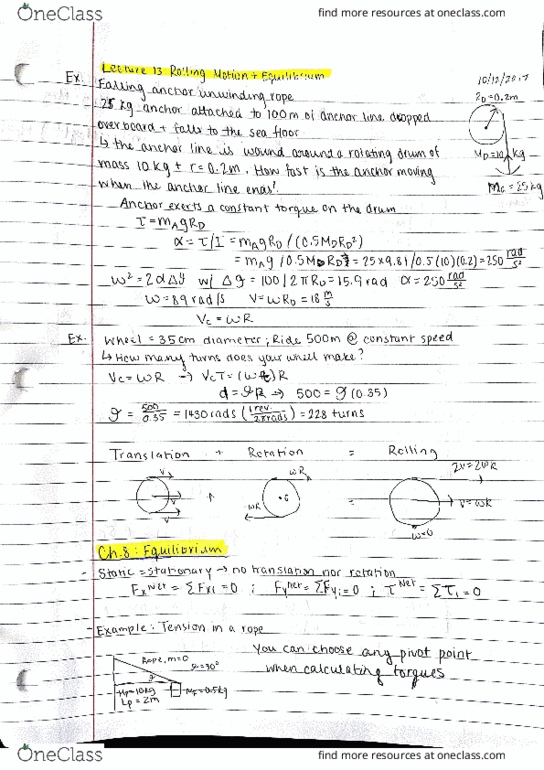 OneClass
find more resources at oneclass.com
Lecture 13 Rolling Motion + Equilibrium
10/12/2017
Ex: Falling anchor unwinding rope
25 kg anchor attached to 100m of anchor line dropped
overboard + falls to the sea floor
↳ the anchor line is wound around a rotating drum of
mass 10 kg + r=0.2m. How fast is the anchor moving
when the anchor line ends?
=0.2m
kg
=25kg
Anchor exerts a constant torque on the drum
τ = m_A g R_D
α = τ/I = m_A g R_D / (0.5 M_D R_D²)
= 25 × 9.81 / 0.5(10)(0.2) = 250 rad/s²
ω² = 2αΔθ w/ = 100/2πR_D = 15.9 rad α = 250 rad/s²
ω = 89 rad/s V = ωR_D = 18 m/s
V_c = ωR
Ex: Wheel = 35cm diameter; Ride 500m @ constant speed
↳ How many turns does your wheel make?
V_c = ωR → V_cT = (ωt)R
d = θR → 500 = θ(0.35)
θ = 500/0.35 = 1430 rads (1 rev./2π rads) = 228 turns
Translation + Rotation = Rolling
v ωR 2v=2ωR
v + c = v=ωR
v ωR ω=0
Ch.8: Equilibrium
Static = stationary → no translation nor rotation
Fx^net = ΣFxi = 0 ; Fy^net = ΣFyi = 0 ; τ^Net = Στi = 0
Example: Tension in a rope
You can choose any pivot point
when calculating torques
Rope, m=0
=30°
=10kg
Lp = 2m
=0.5kg
OneClass
find more resources at oneclass.com